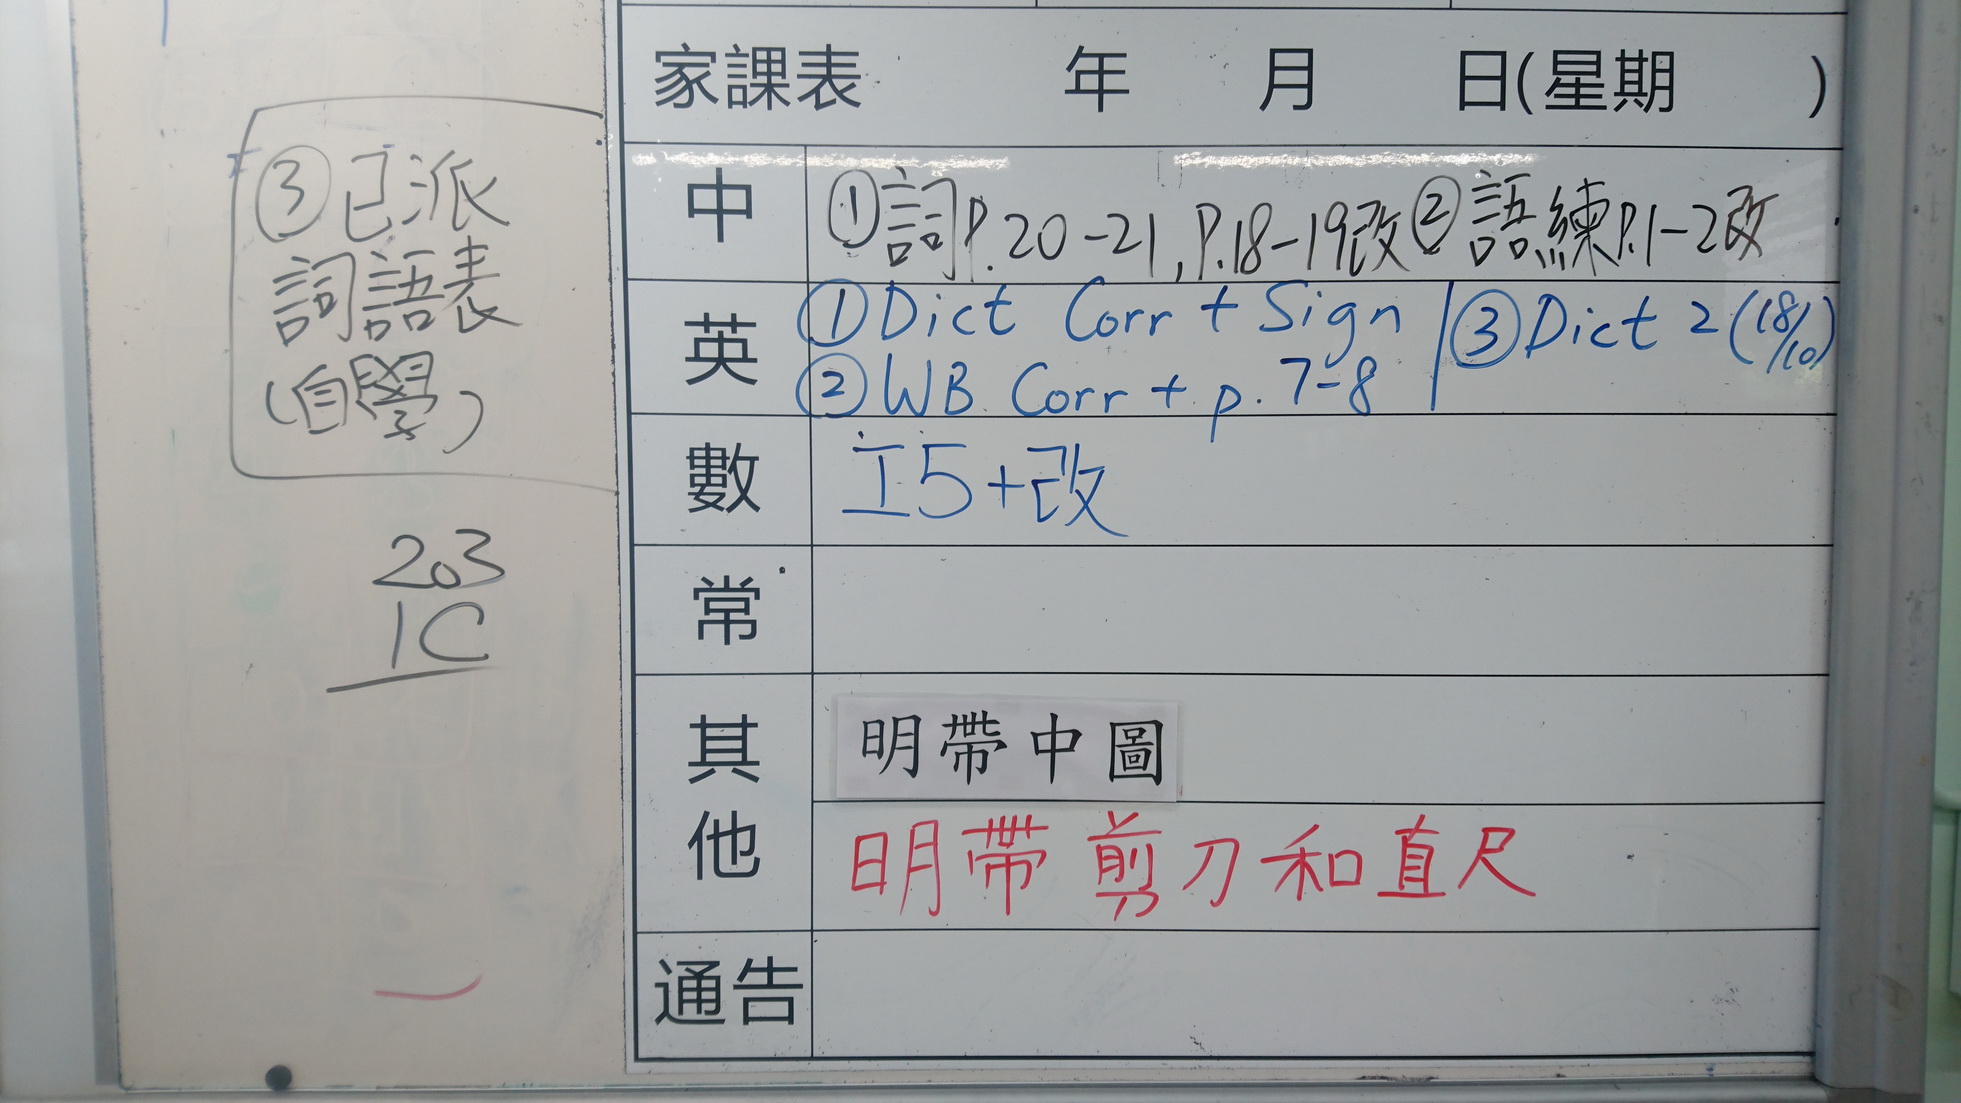 家課表 年 月 日(星期 )
中 ①詞P.20-21,P.18-19改②語練P.1-2改
③已派
詞語表
(自學)
英 ①Dict Corr + Sign ③Dict 2(18/10)
②WB Corr + p.7-8
數 工5+改
203
1C
常
其他
明帶中圖
明帶剪刀和直尺
通告